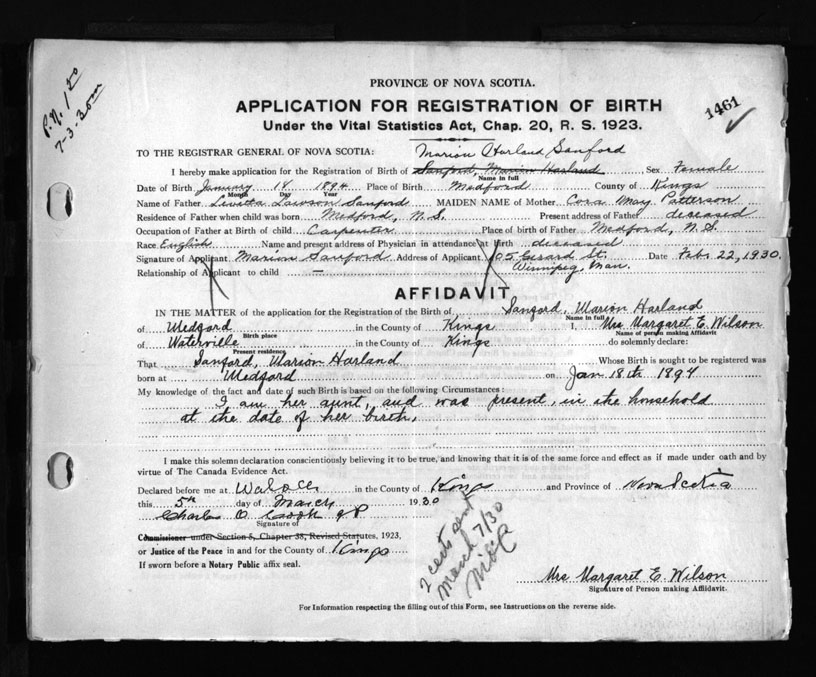 P.N. 1 50
7-3-30 m
PROVINCE OF NOVA SCOTIA.
APPLICATION FOR REGISTRATION OF BIRTH
1461
Under the Vital Statistics Act, Chap. 20, R. S. 1923.
TO THE REGISTRAR GENERAL OF NOVA SCOTIA: Marion Harland Sanford
I hereby make application for the Registration of Birth of Sanford, Marion Harland Sex Female
Name in full
Date of Birth January 18 1894 Place of Birth Medford County of Kings
Month Day Year
Name of Father Lawson Sanford MAIDEN NAME of Mother Cora May Patterson
Residence of Father when child was born Medford, N.S. Present address of Father deseased
Occupation of Father at Birth of child Carpenter Place of birth of Father Medford, N.S.
Race English Name and present address of Physician in attendance at Birth diseased
Signature of Applicant Marion Sanford Address of Applicant 105 Girard St. Date Feb. 22, 1930.
Winnipeg, Man.
Relationship of Applicant to child —
AFFIDAVIT
IN THE MATTER of the application for the Registration of the Birth of Sanford, Marion Harland
Name in full
of Medford in the County of Kings I, Mrs Margaret E. Wilson
Birth place Name of person making Affidavit
of Waterville in the County of Kings do solemnly declare:
Present residence
That Sanford, Marion Harland Whose Birth is sought to be registered was
born at Medford on Jan 18th 1894
My knowledge of the fact and date of such Birth is based on the following Circumstances:
I am her aunt, and was present, in the household
at the date of her birth,
I make this solemn declaration conscientiously believing it to be true, and knowing that it is of the same force and effect as if made under oath and by
virtue of The Canada Evidence Act.
Declared before me at in the County of Kings and Province of Nova Scotia
this 5th day of March 1930
Charles O. Cook JP
Signature of
Commissioner under Section 5, Chapter 38, Revised Statutes, 1923,
or Justice of the Peace in and for the County of Kings
If sworn before a Notary Public affix seal.
2 certs sent
March 7/30
Mrs Margaret E. Wilson
Signature of Person making Affidavit.
For Information respecting the filling out of this Form, see Instructions on the reverse side.